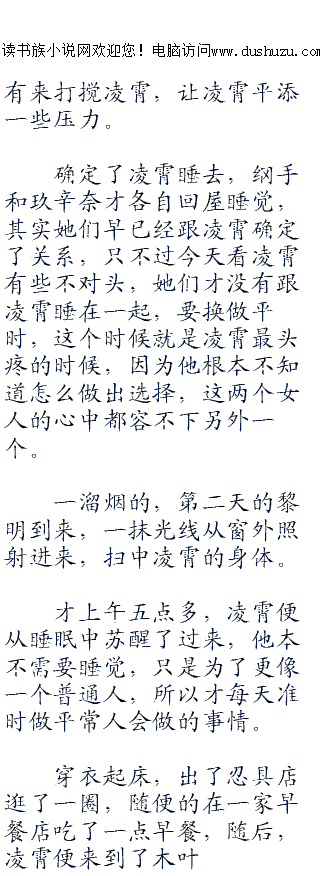 读书族小说网欢迎您！电脑访问www.dushuzu.com
有来打搅凌霄，让凌霄平添
一些压力。
确定了凌霄睡去，纲手
和玖辛奈才各自回屋睡觉，
其实她们早已经跟凌霄确定
了关系，只不过今天看凌霄
有些不对头，她们才没有跟
凌霄睡在一起，要换做平
时，这个时候就是凌霄最头
疼的时候，因为他根本不知
道怎么做出选择，这两个女
人的心中都容不下另外一
个。
一溜烟的，第二天的黎
明到来，一抹光线从窗外照
射进来，扫中凌霄的身体。
才上午五点多，凌霄便
从睡眠中苏醒了过来，他本
不需要睡觉，只是为了更像
一个普通人，所以才每天准
时做平常人会做的事情。
穿衣起床，出了忍具店
逛了一圈，随便的在一家早
餐店吃了一点早餐，随后，
凌霄便来到了木叶